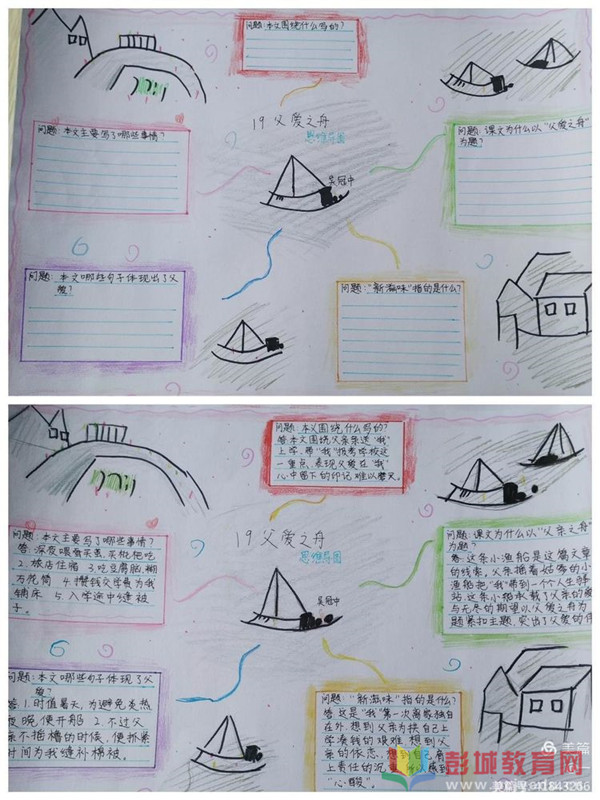 问题:本文围绕什么写的?
19 父爱之舟
思维导图
吴冠中
问题:本文主要写了哪些事情?
问题:课文为什么以"父爱之舟"
为题?
问题:本文哪些句子体现出了父
爱?
问题:"新滋味"指的是什么?
问题:本文围绕什么写的?
答:本文围绕父亲亲送"我"
上学,带"我"报考学校这
一重点,表现父爱在"我"
心中留下的印记难以磨灭。
19 父爱之舟
思维导图
吴冠中
问题:本文主要写了哪些事情?
答:深夜喂蚕买蚕,买枇杷吃
2.旅店住宿 3.吃豆腐脑,糊
万花筒 4.攒钱交学费为我
铺床 5.入学途中缝被
子。
问题:课文为什么以"父亲之舟"
为题?
答:这条小渔船是这篇文章
的线索,父亲摇着姑爹的小
渔船把"我"带到一个个人生驿
站,这条小船承载了父亲的
与无尽的期望以父爱之舟为
题紧扣主题,突出了父爱的伟
问题:本文哪些句子体现了父
爱?
答 1.时值暑天,为避免炎热
夜晚便开船 2.不过父
亲不摇橹的时候,便抓紧
时间为我缝补棉被。
问题:"新滋味"指的是什么?
答:这是"我"第一次离家独自
在外,想到父亲为供自己上
学凑钱的艰难,想到父
亲的依恋,想到自己肩
上责任的沉
"心酸"。
彭城教育网
美篇